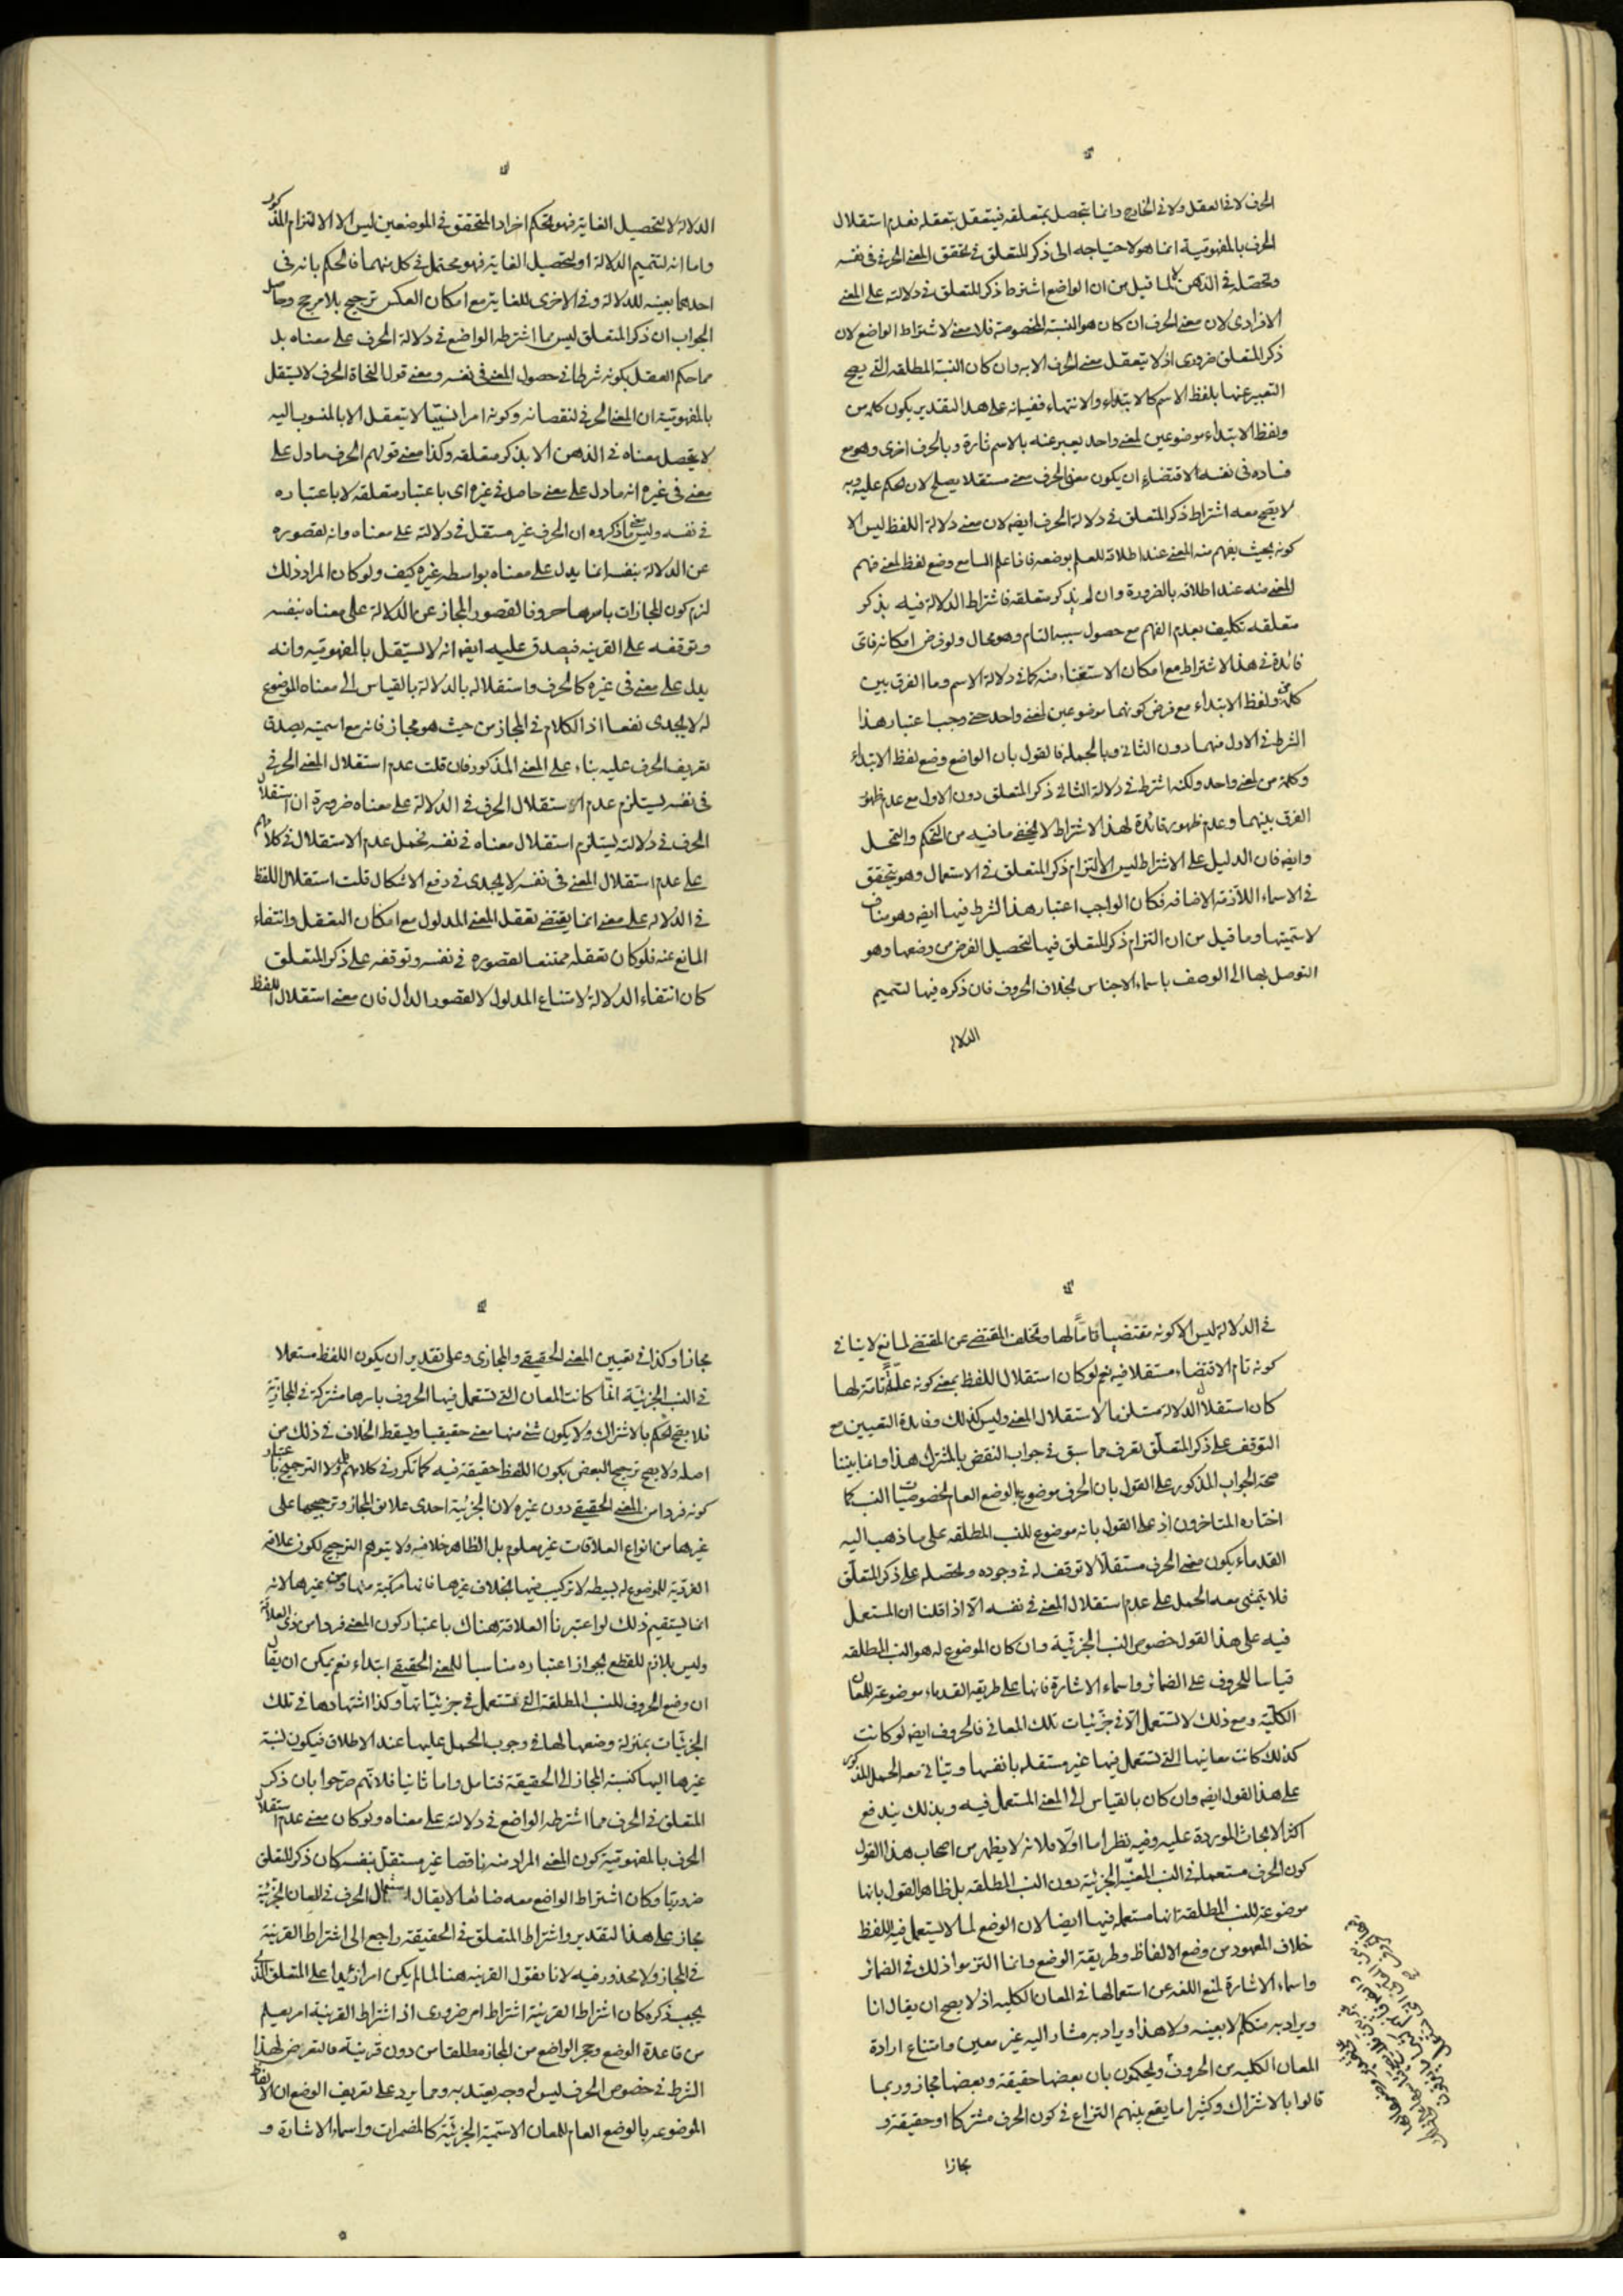 الحرف لا في العقل ولا في الخارج وانما يتحصل بمتعلقه فيتعقل بتعقله فعدم استقلال
الحرف بالمفهومية انما هو لاحتياجه الى ذكر المتعلق في تحقق المعنى الحرفي في نفسه
وتحصله في الذهن لا لما قيل من ان الواضع اشترط ذكر المتعلق في دلالته على المعنى
الافرادى لان معنى الحرف ان كان هو النسبة المخصوصة فلا معنى لاشتراط الواضع لان
ذكر المتعلق ضرورى اذ لا يتعقل معنى الحرف الا به وان كان النسبة المطلقه التي يصح
التعبير عنها بلفظ الاسم كالابتداء والانتهاء ففيه انه على هذا التقدير يكون كلمة من
ولفظ الابتداء موضوعين لمعنى واحد يعبر عنه بالاسم تارة وبالحرف اخرى وهو مع
فساده في نفسه لاقتضاء ان يكون معنى الحرف معنى مستقلا يصلح لان يحكم عليه وبه
لا يصح معه اشتراط ذكر المتعلق في دلالة الحرف ايضا لان معنى دلالة اللفظ ليس الا
كونه بحيث يفهم منه المعنى عند اطلاقه للعلم بوضعه فاذا علم السامع وضع لفظ لمعنى فهم
المعنى منه عند اطلاقه بالضرورة وان لم يذكر متعلقه فاشتراط الدلالة فيه بذكر
متعلقه تكليف بعدم الفهم مع حصول سببه التام وهو محال ولو فرض امكانه فاى
فائدة في هذا الاشتراط مع امكان الاستغناء منه كما في دلالة الاسم وما الفرق بين
كلمة من ولفظ الابتداء مع فرض كونهما موضوعين لمعنى واحد حتى وجب اعتبار هذا
الشرط في الاول منهما دون الثاني وبالجملة فالقول بان الواضع وضع لفظ الابتداء
وكلمة من لمعنى واحد ولكنه اشترط في دلالة الثاني ذكر المتعلق دون الاول مع عدم ظهور
الفرق بينهما وعدم ظهور فائدة لهذا الاشتراط لا يخفى ما فيه من التحكم والتمحل
وايضا فان الدليل على الاشتراط ليس الا التزام ذكر المتعلق في الاستعمال وهو يتحقق
في الاسماء اللازمة الاضافه فكان الواجب اعتبار هذا الشرط فيها ايضا وهو مناف
لاسميتها وما قيل من ان التزام ذكر المتعلق فيها لتحصيل الغرض من وضعها وهو
التوصل بها الى الوصف باسماء الاجناس بخلاف الحروف فان ذكره فيها لتتميم
الدلالة
الدلالة لا لتحصيل الغاية فهو تحكم اخر اذ المتحقق في الموضعين ليس الا الالتزام المذكور
واما انه لتتميم الدلالة او لتحصيل الغاية فهو محتمل في كل منهما فالحكم بانه في
احدهما بعينه للدلالة وفي الاخرى للغاية مع امكان العكس ترجيح بلا مرجح وحاصل
الجواب ان ذكر المتعلق ليس مما اشترطه الواضع في دلالة الحرف على معناه بل
مما حكم العقل بكونه شرطا في حصول المعنى في نفسه ومعنى قول النحاة الحرف لا يستقل
بالمفهومية ان المعنى الحرفي لنقصانه وكونه امرا نسبيا لا يتعقل الا بالمنسوب اليه
لا يتحصل معناه في الذهن الا بذكر متعلقه وكذا معنى قولهم الحرف ما دل على
معنى في غيره انه ما دل على معنى حاصل في غيره اى باعتبار متعلقه لا باعتباره
في نفسه وليس معنى ما ذكروه ان الحرف غير مستقل في دلالته على معناه وانه لقصوره
عن الدلالة بنفسه انما يدل على معناه بواسطه غيره كيف ولو كان المراد ذلك
لزم كون المجازات باسرها حروفا لقصور المجاز عن الدلالة على معناه بنفسه
وتوقفه على القرينه فيصدق عليه ايضا انه لا يستقل بالمفهوميه وانه
يدل على معنى في غيره كالحرف واستقلاله بالدلالة بالقياس الى معناه الموضوع
له لا يجدى نفعا اذ الكلام في المجاز من حيث هو مجاز فانه مع اسميته يصدق
تعريف الحرف عليه بناء على المعنى المذكور فان قلت عدم استقلال المعنى الحرفي
في نفسه يستلزم عدم استقلال الحرف في الدلالة على معناه ضرورة ان استقلال
الحرف في دلالته يستلزم استقلال معناه في نفسه فحمل عدم الاستقلال في كلامهم
على عدم استقلال المعنى في نفسه لا يجدى في دفع الاشكال قلت استقلال اللفظ
في الدلالة على معنى انما يقتضى تعقل المعنى المدلول مع امكان التعقل وانتفاء
المانع عنه فلو كان تعقله ممتنعا لقصوره في نفسه وتوقفه على ذكر المتعلق
كان انتفاء الدلالة لامتناع المدلول لا لقصور الدال فان معنى استقلال اللفظ
في الدلالة ليس الا كونه مقتضيا تاما لها وتخلف المقتضى عن المقتضى لمانع لا ينافي
كونه تام الاقتضاء مستقلا فيه نعم لو كان استقلال اللفظ بمعنى كونه علة تامة لها
كان استقلال الدلالة مستلزما لاستقلال المعنى وليس كذلك وفائدة التعيين مع
التوقف على ذكر المتعلق تعرف مما سبق في جواب النقض بالمشترك هذا وانما بينا
صحة الجواب المذكور على القول بان الحرف موضوع بالوضع العام لخصوصيات النسب كما
اختاره المتاخرون اذ على القول بانه موضوع للنسب المطلقه على ما ذهب اليه
القدماء يكون معنى الحرف مستقلا لا توقف له في وجوده وتحصله على ذكر المتعلق
فلا يتمشى معه الحمل على عدم استقلال المعنى في نفسه الا اذا قلنا ان المستعمل
فيه على هذا القول خصوص النسب الجزئية وان كان الموضوع له هو النسب المطلقه
قياسا للحروف على الضمائر واسماء الاشارة فانها على طريقة القدماء موضوعة للمعان
الكلية ومع ذلك لا تستعمل الا في جزئيات تلك المعاني فالحروف ايضا لو كانت
كذلك كانت معانيها التي تستعمل فيها غير مستقله بانفسها ويتأتى معه الحمل المذكور
على هذا القول ايضا وان كان بالقياس الى المعنى المستعمل فيه وبذلك يندفع
اكثر الابحاث الموردة عليه وفيه نظر اما اولا فلانه لا يظهر من اصحاب هذا القول
كون الحرف مستعملة في النسب المعنية الجزئية دون النسب المطلقه بل ظاهر القول بانها
موضوعة للنسب المطلقة انها مستعمله فيها ايضا لان الوضع لما لا يستعمل فيه اللفظ
خلاف المعهود من وضع الالفاظ وطريقة الوضع وانما التزموا ذلك في الضمائر
واسماء الاشارة لمنع اللغة عن استعمالها في المعان الكليه اذ لا يصح ان يقال انا
ويراد به متكلم لا بعينه ولا هذا ويراد به مشار اليه غير معين وامتناع ارادة
المعان الكليه من الحروف ويحكمون بان بعضها حقيقة وبعضها مجاز وربما
قالوا بالاشتراك وكثيرا ما يقع بينهم النزاع في كون الحرف مشتركا او حقيقة و
مجازا
مجازا وكذا في تعيين المعنى الحقيقي والمجازى وعلى تقدير ان يكون اللفظ مستعملا
في النسب الجزئية انما كانت المعان التي تستعمل فيها الحروف باسرها مشتركة في المجازية
فلا يصح الحكم بالاشتراك ولا يكون شئ منها معنى حقيقيا ويسقط الخلاف في ذلك من
اصله ولا يصح ترجيح البعض بكون اللفظ حقيقة فيه كما تكرر في كلامهم ولا الترجيح باعتبار
كونه فردا من المعنى الحقيقي دون غيره لان الجزئية احدى علائق المجاز وترجيحها على
غيرها من انواع العلاقات غير معلوم بل الظاهر خلافه ولا يتوهم الترجيح لكون علاقة
الفردية للموضوع له بسيطه لا تركيب فيها بخلاف غيرها فانها مركبة منها ومن غيرها لانه
انما يستقيم ذلك لو اعتبرنا العلاقة هناك باعتبار كون المعنى فردا من ذى العلاقة
وليس بلازم للقطع بجواز اعتباره مناسبا للمعنى الحقيقي ابتداء نعم يمكن ان يقال
ان وضع الحروف للنسب المطلقة التي تستعمل في جزئياتها وكذا اشتهارها في تلك
الجزئيات بمنزلة وضعها لها في وجوب الحمل عليها عند الاطلاق فيكون نسبة
غيرها اليها كنسبة المجاز الى الحقيقة فتامل واما ثانيا فلانهم صرحوا بان ذكر
المتعلق في الحرف مما اشترطه الواضع في دلالته على معناه ولو كان معنى عدم استقلال
الحرف بالمفهومية كون المعنى المراد منه ناقصا غير مستقل بنفسه كان ذكر المتعلق
ضروريا وكان اشتراط الواضع معه ضائعا لا يقال استعمال الحرف في المعان الجزئية
مجاز على هذا التقدير واشتراط المتعلق في الحقيقة راجع الى اشتراط القرينة
في المجاز ولا محذور فيه لانا نقول القرينه هنا لما لم يكن امرا زائدا على المتعلق الذى
يجب ذكره كان اشتراط القرينة اشتراط امر ضرورى اذ اشتراط القرينة امر يعلم
من قاعدة الوضع وحجر الواضع من المجاز مطلقا من دون قرينة فالتعرض لهذا
الشرط في خصوص الحرف ليس له وجه يعتد به ومما يرد على تعريف الوضع ان الالفاظ
الموضوعه بالوضع العام للمعان الاسمية الجزئية كالمضمرات واسماء الاشارة و